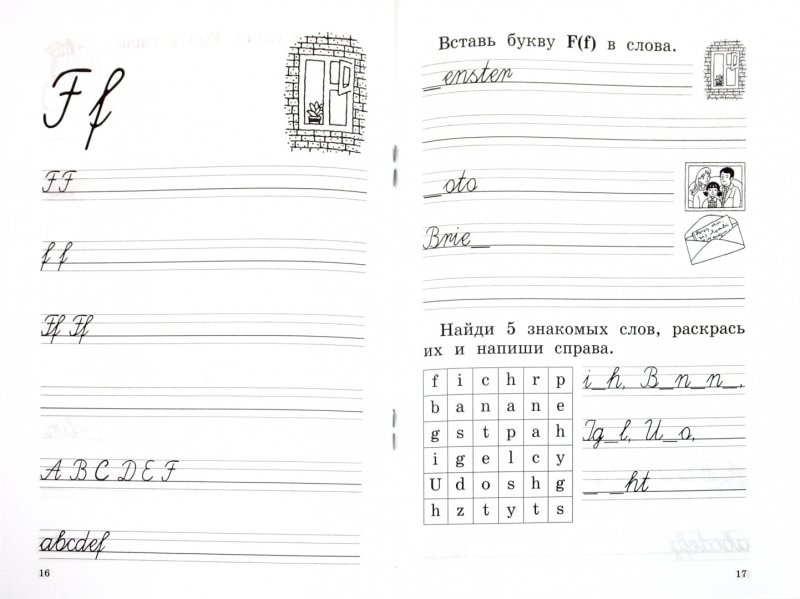 F f
F F
f f
Ff Ff
A B C D E F
abcdef
16
Вставь букву F(f) в слова.
_enster
_oto
Brie_
Найди 5 знакомых слов, раскрась
их и напиши справа.
f i c h r p
b a n a n e
g s t p a h
i g e l c y
U d o s h g
h z t y t s
i_h, B_n_n_,
Ig_l, U_o,
_ _ht
17